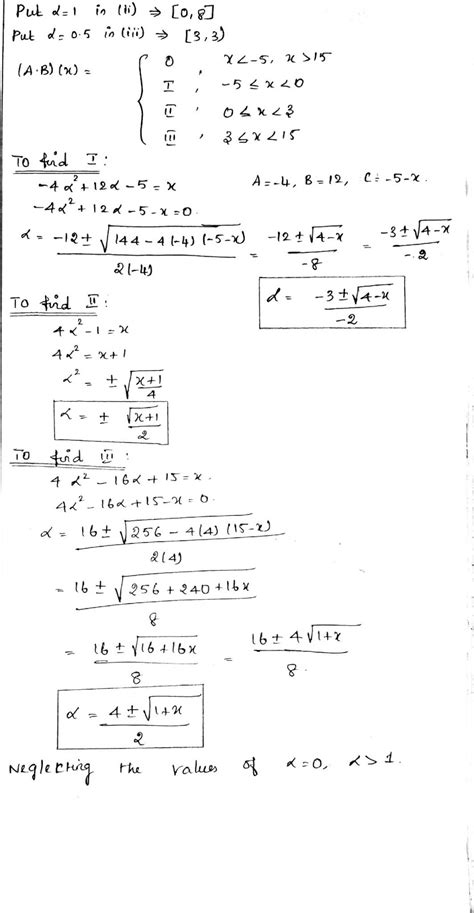 Put α=1 in (ii) ⇒ [0,8]
Put α=0.5 in (iii) ⇒ [3,3)
(A·B)(x) = { 0 , x<-5, x>15
I , -5≤x<0
II , 0≤x<3
III , 3≤x<15
To find I :
-4α²+12α-5=x A=-4, B=12, C=-5-x.
-4α²+12α-5-x=0.
α = -12±√144-4(-4)(-5-x) / 2(-4) = -12±√4-x / -8 = -3±√4-x / -2
α = -3±√4-x / -2
To find II :
4α²-1=x
4α²=x+1
α² = ±√x+1/4
α = ± √x+1/2
To find III :
4α²-16α+15=x.
4α²-16α+15-x=0.
α = 16±√256-4(4)(15-x) / 2(4)
= 16±√256+240+16x / 8
= 16±√16+16x / 8 = 16±4√1+x / 8.
α = 4±√1+x / 2
Neglecting the values of α=0, α>1.